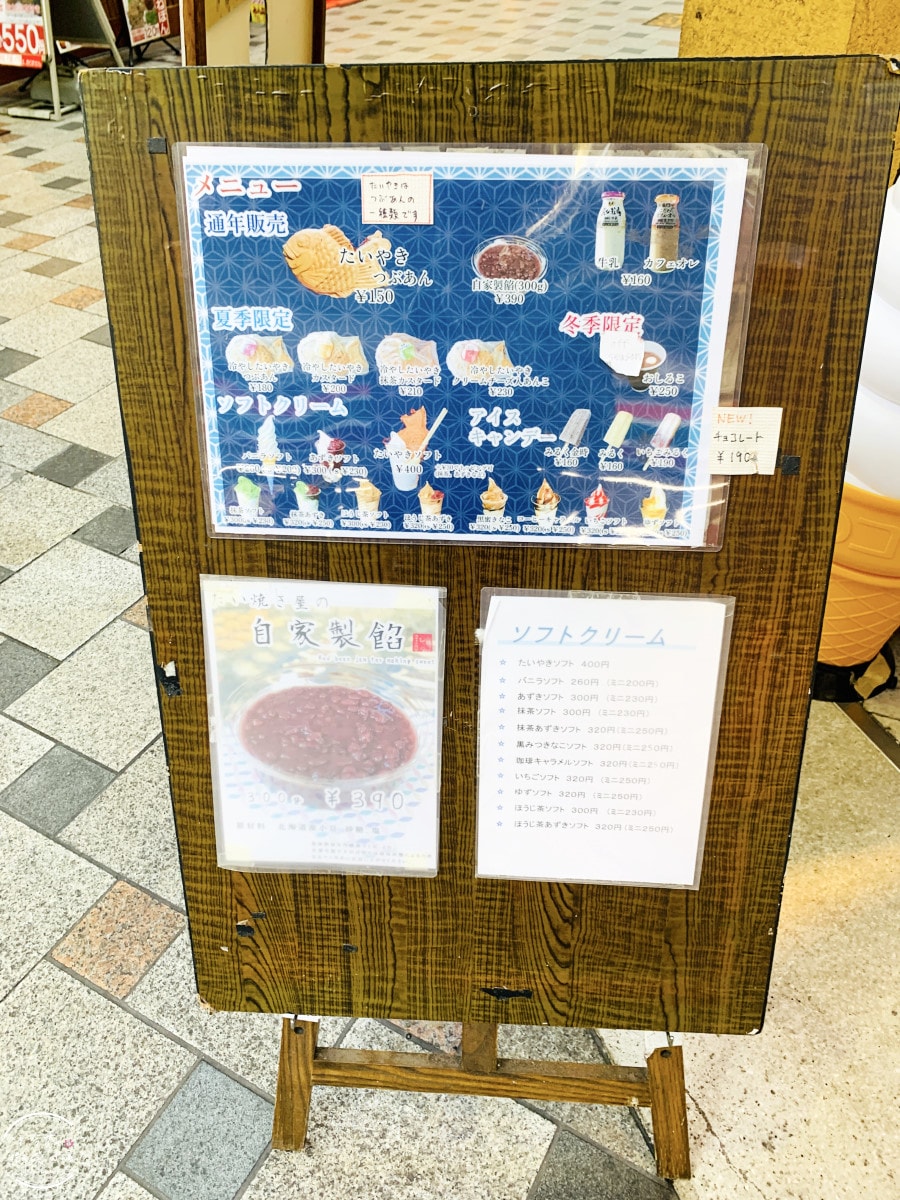 550
メニュー
たいやきは
つぶあんの
一種類です
通年販売
たいやき
つぶあん
¥150
自家製餡(300g)
¥390
牛乳
カフェオレ
¥160
夏季限定
冬季限定
冷やしたいやき
つぶあん
¥180
冷やしたいやき
カスタード
¥200
冷やしたいやき
抹茶カスタード
¥210
冷やしたいやき
クリームチーズ入あんこ
¥230
おしるこ
¥250
ソフトクリーム
アイス
キャンデー
バニラソフト
あずきソフト
たいやきソフト
¥400
みるく金時
¥160
みるく
¥160
いちごみるく
¥190
NEW!
チョコレート
¥190
抹茶ソフト
抹茶あずき
ほうじ茶ソフト
ほうじ茶あずき
黒蜜きなこ
いちごソフト
ゆずソフト
たい焼き屋の
自家製餡
300g ¥390
ソフトクリーム
☆ たいやきソフト 400円
☆ バニラソフト 260円 (ミニ200円)
☆ あずきソフト 300円 (ミニ230円)
☆ 抹茶ソフト 300円 (ミニ230円)
☆ 抹茶あずきソフト 320円(ミニ250円)
☆ 黒みつきなこソフト 320円(ミニ250円)
☆ 珈琲キャラメルソフト 320円(ミニ250円)
☆ いちごソフト 320円 (ミニ250円)
☆ ゆずソフト 320円 (ミニ250円)
☆ ほうじ茶ソフト 300円 (ミニ230円)
☆ ほうじ茶あずきソフト 320円(ミニ250円)